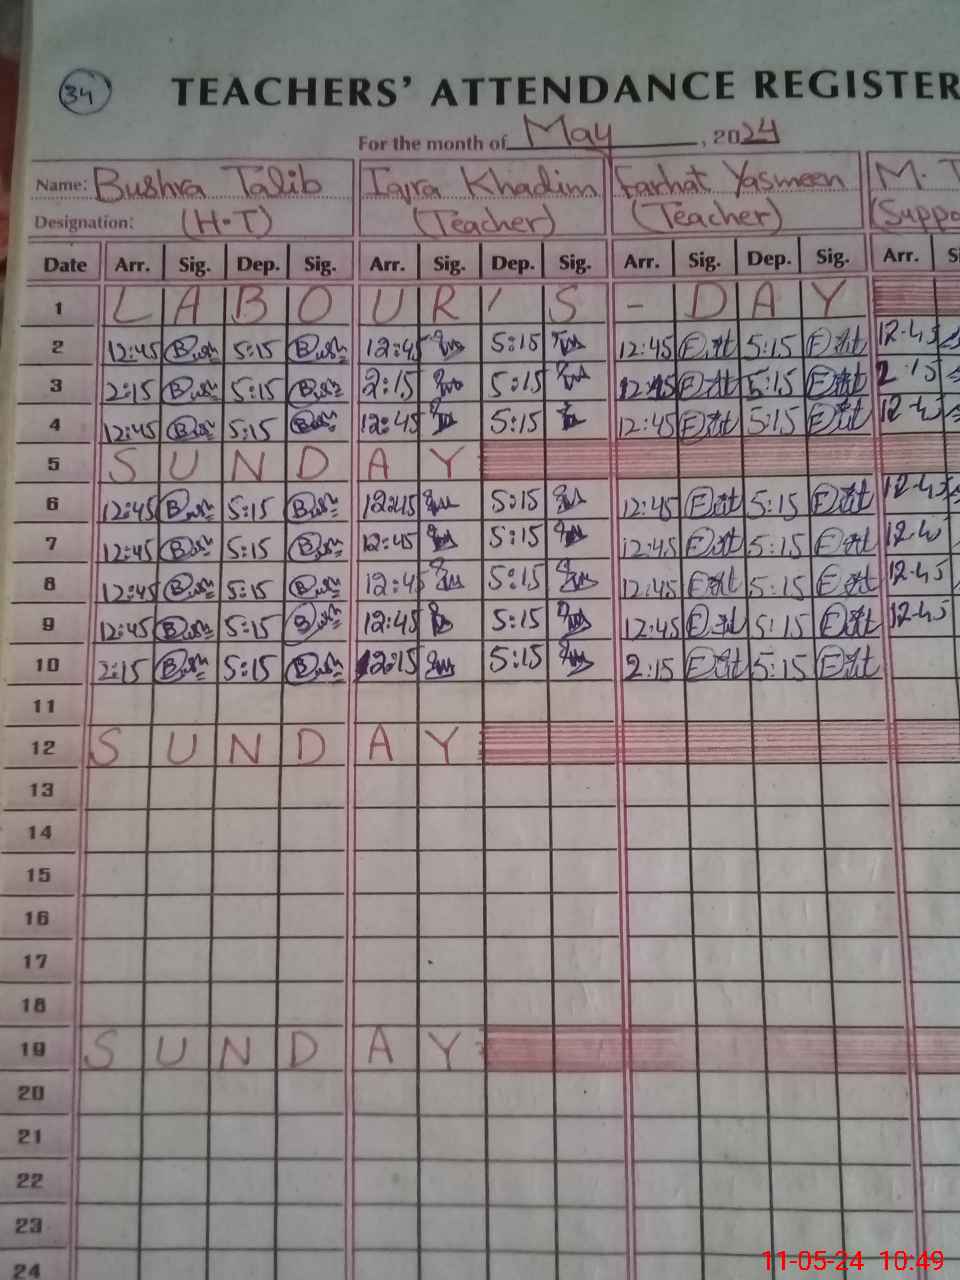 34
TEACHERS' ATTENDANCE REGISTER
For the month of May, 2024
Name: Bushra Talib Iqra Khadim Farhat Yasmeen M. T
Designation: (H.T) (Teacher) (Teacher) (Suppo
Date Arr. Sig. Dep. Sig. Arr. Sig. Dep. Sig. Arr. Sig. Dep. Sig. Arr. Si
1 LABOUR'S - DAY
2 12:45 Bush 5:15 Bush 12:45 5:15 12:45 5:15 12.45
3 2:15 Bush 5:15 Bush 2:15 5:15 12:45 5:15 2:15
4 12:45 Bush 5:15 Bush 12:45 5:15 12:45 5:15 12.45
5 SUNDAY
6 12:45 Bush 5:15 Bush 5:15 12:45 5:15 12.45
7 12:45 Bush 5:15 Bush 12:45 5:15 12:45 5:15 12.45
8 12:45 Bush 5:15 Bush 12:45 5:15 12:45 5:15 12.45
9 12:45 Bush 5:15 Bush 12:45 5:15 12:45 5:15 12.45
10 2:15 Bush 5:15 Bush 2:15 5:15 2:15 5:15
11
12 SUNDAY
13
14
15
16
17
18
19 SUNDAY
20
21
22
23
24
11-05-24 10:49